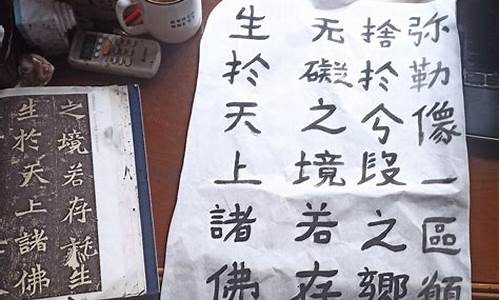 弥勒像一區願
捨於分段之鄉
无礙之境若存
生於天上諸佛
之境若存託生
生於天上諸佛